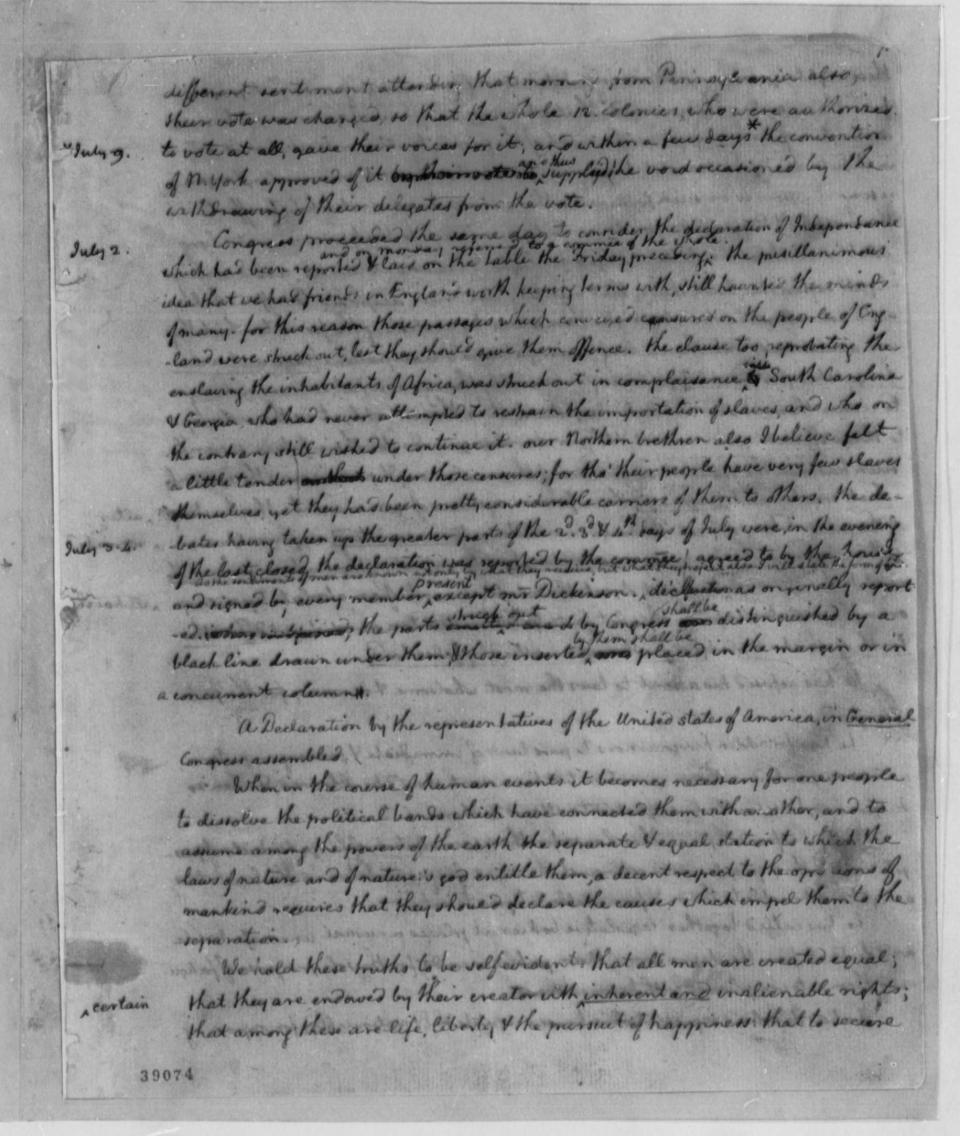 different sentiment attending that morning from Pennsylvania also,
their vote was changed, so that the whole 12. colonies, who were authorized
July 9. to vote at all, gave their voices for it; and within a few days* the convention
of N. York approved of it by their votes & thus supplied the void occasioned by the
withdrawing of their delegates from the vote.
July 2. Congress proceeded the same day to consider the declaration of Independance
and on monday referred to a commee of the whole.
which had been reported & laid on the table the Friday preceding. the pusillanimous
idea that we had friends in England worth keeping terms with, still haunted the minds
of many. for this reason those passages which conveyed censures on the people of Eng-
-land were struck out, lest they should give them offence. the clause too, reprobating the
enslaving the inhabitants of Africa, was struck out in complaisance to South Carolina
& Georgia who had never attempted to restrain the importation of slaves, and who on
the contrary still wished to continue it. our Northern brethren also I believe felt
a little tender under those censures; for tho' their people have very few slaves
themselves yet they had been pretty considerable carriers of them to others. the de-
July 3. 4. bates having taken up the greater parts of the 2d. 3d. & 4th. days of July were, in the evening
of the last closed. the declaration was reported by the commee, agreed to by the house
as the sentiments of men are known not only by what they receive, but what they reject also, I will state the form of the
and signed by every member present except mr Dickinson. declaration as originally report
-ed. the parts struck out by Congress shall be distinguished by a
black line drawn under them; & those inserted by them shall be placed in the margin or in
a concurrent column.
A Declaration by the representatives of the United states of America, in General
Congress assembled.
When in the course of human events it becomes necessary for one people
to dissolve the political bands which have connected them with another, and to
assume among the powers of the earth the separate & equal station to which the
laws of nature and of nature's god entitle them, a decent respect to the opinions of
mankind requires that they should declare the causes which impel them to the
separation.
We hold these truths to be self evident: that all men are created equal;
^certain that they are endowed by their creator with ^ inherent and inalienable rights;
that among these are life, liberty & the pursuit of happiness: that to secure
39074